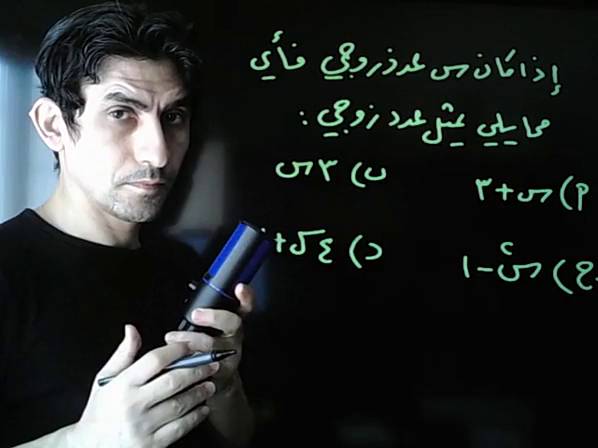 إذا كان س عدد زوجي فأي
مما يلي يمثل عدد زوجي :
أ) س + ٣ ب) ٣ س
ج) س٢ - ١ د) ٤ س +